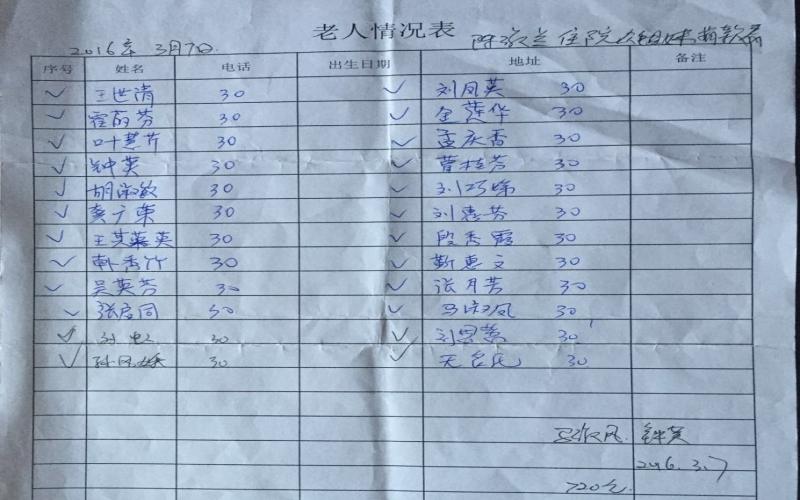 老人情况表
2016年3月7日. 住院众姐妹捐款
序号 姓名 电话 出生日期 地址 备注
✓ 王世清 30 ✓ 刘凤英 30
✓ 霍丽芬 30 ✓ 金莲华 30
✓ 叶慧芹 30 ✓ 孟庆香 30
✓ 钟英 30 ✓ 曹桂芳 30
✓ 胡淑敏 30 ✓ 刘巧娣 30
✓ 龚广荣 30 ✓ 刘惠芬 30
✓ 王英 30 ✓ 段秀霞 30
✓ 韩秀竹 30 ✓ 靳惠文 30
✓ 吴英芳 30 ✓ 张月芳 30
✓ 张启同 50 ✓ 马淑凤 30
✓ 30 ✓ 刘恩 30
✓ 孙凤 30 ✓ 无名氏 30
马淑凤 钟英
2016.3.7
720元